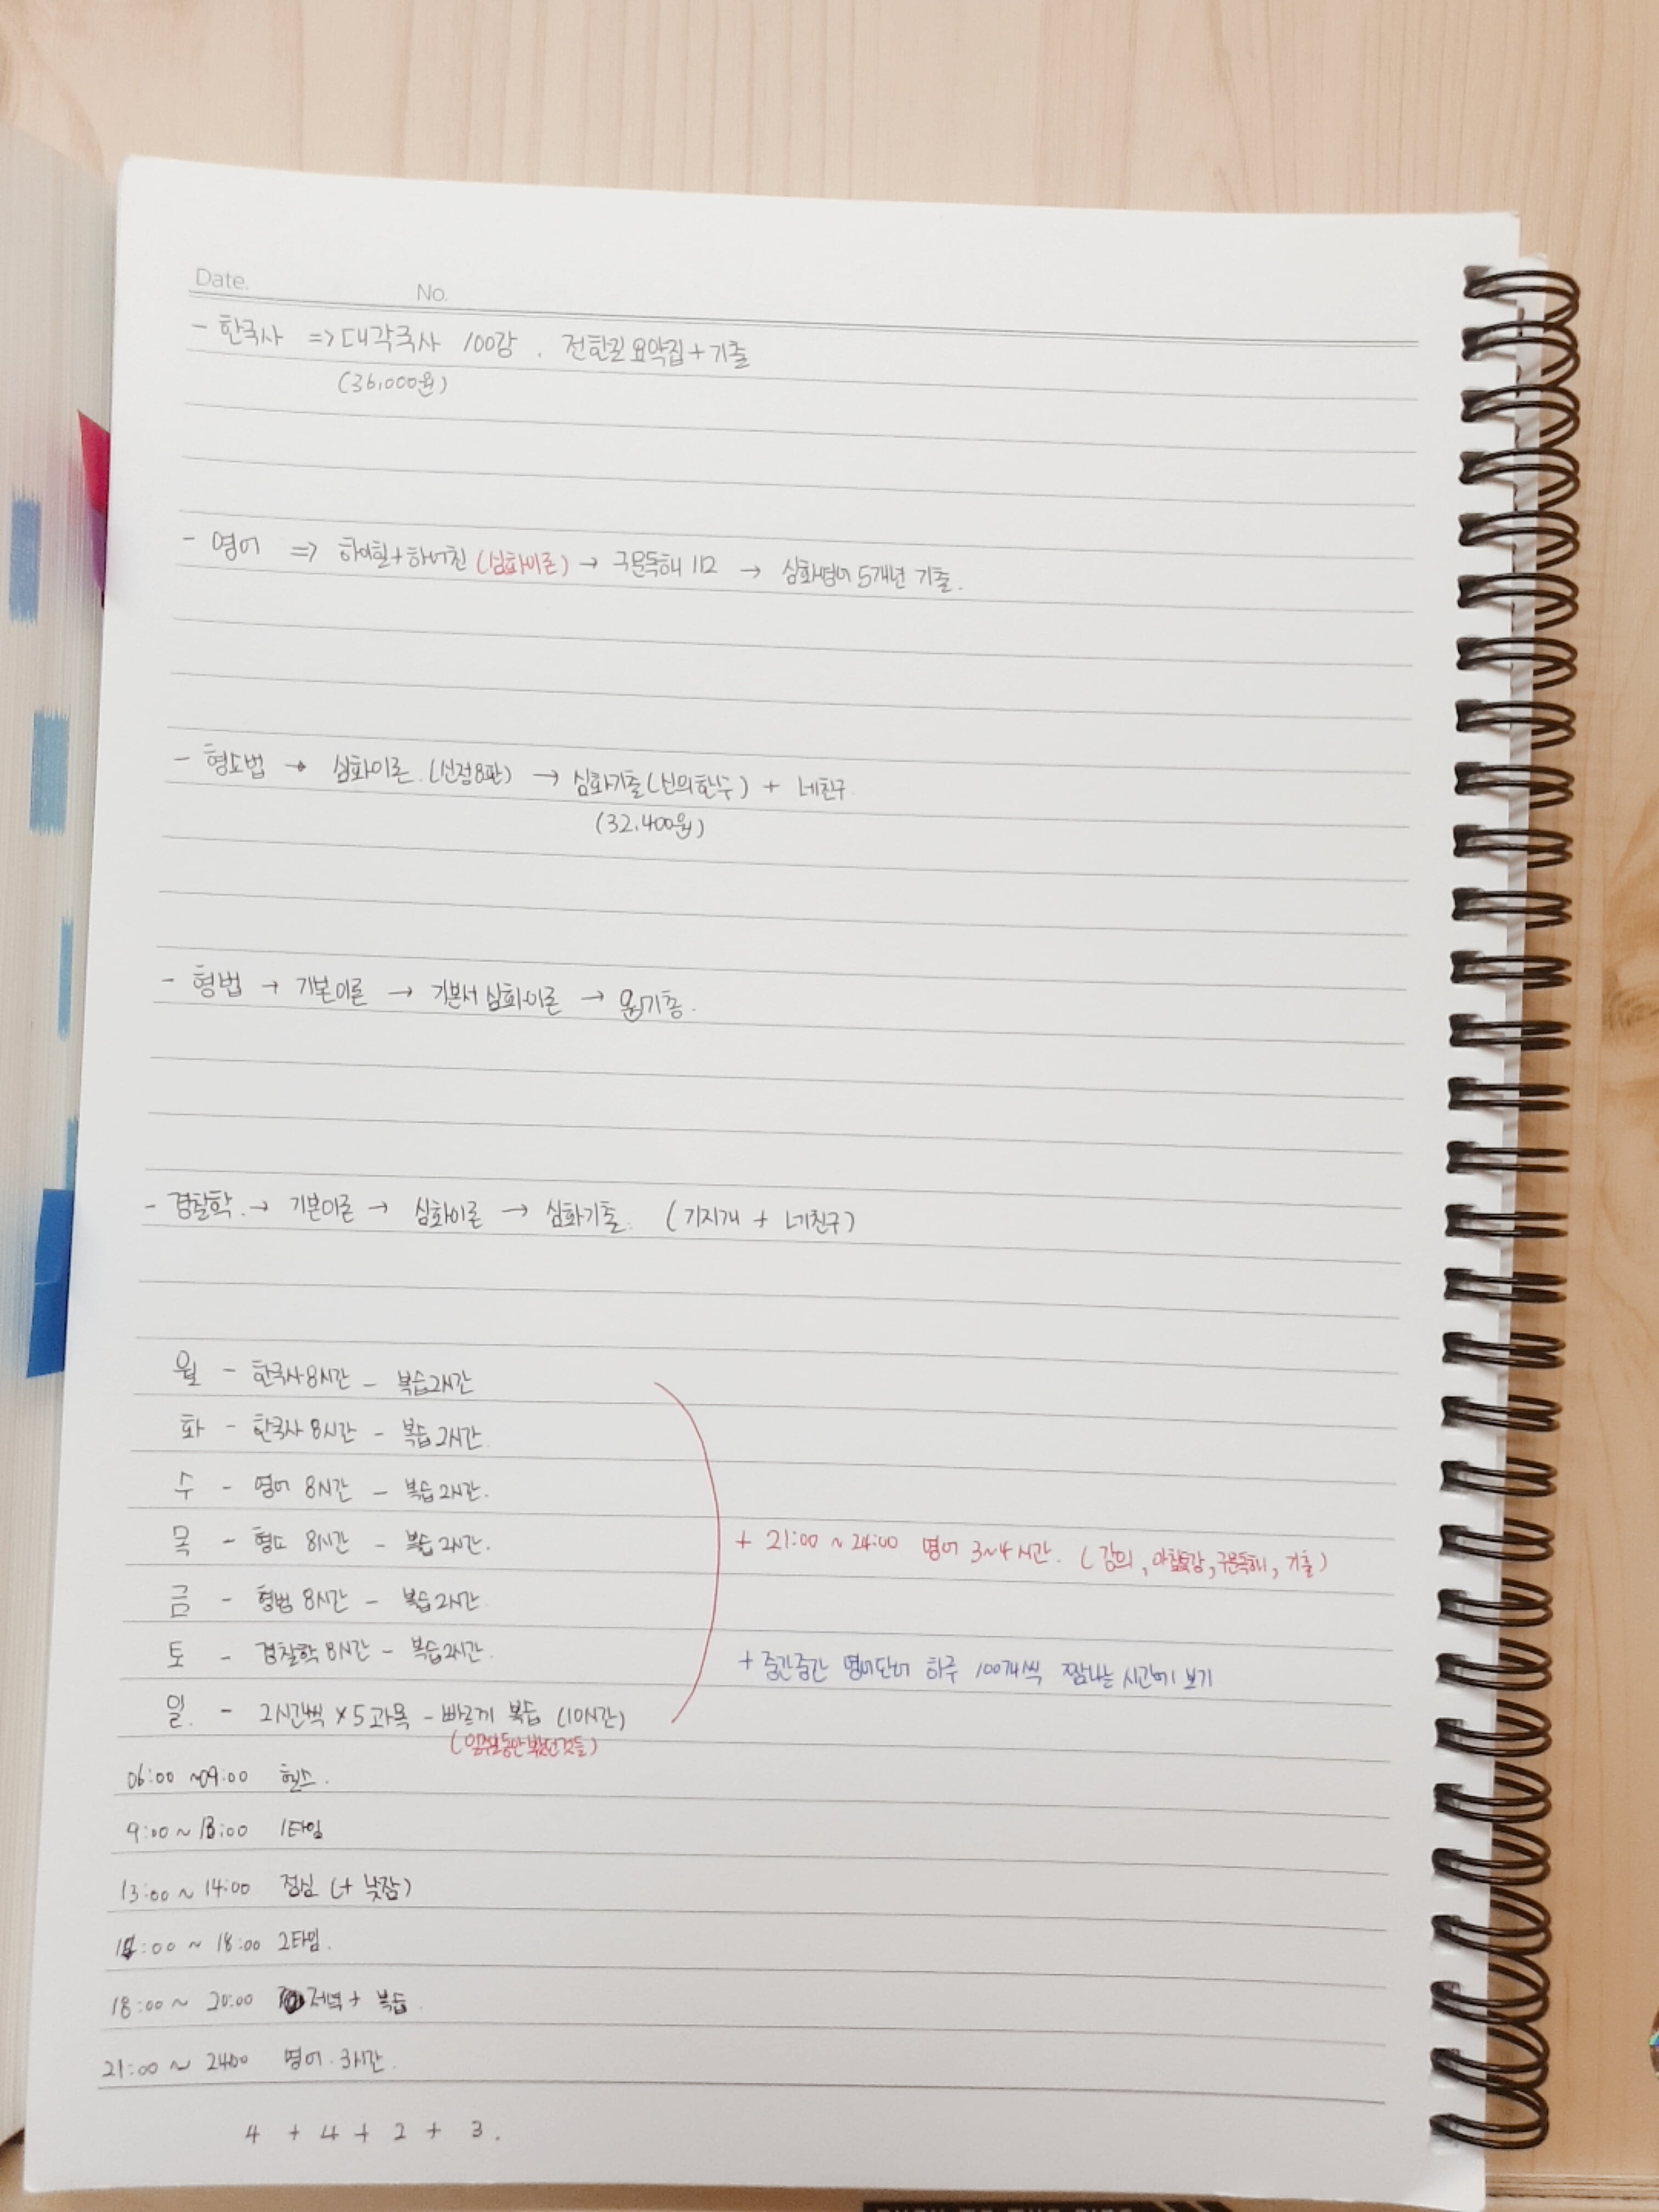 Date. No.
- 한국사 => 대각국사 100강 . 전한길 요약집 + 기출
(36,000원)
- 영어 => 하이힐 + 하버친 (심화이론) → 구문독해 112 → 심화영어 5개년 기출.
- 형소법 → 심화이론. (신정8판) → 심화기출 (신의한수) + 네친구
(32,400원)
- 형법 → 기본이론 → 기본서 심화이론 → 원기총.
- 경찰학. → 기본이론 → 심화이론 → 심화기출. (기지개 + 네친구)
월 - 한국사 8시간 - 복습 2시간
화 - 한국사 8시간 - 복습 2시간
수 - 영어 8시간 - 복습 2시간.
목 - 형소 8시간 - 복습 2시간.
+ 21:00 ~ 24:00 영어 3~4시간. (강의, 아침특강, 구문독해, 기출)
금 - 형법 8시간 - 복습 2시간
토 - 경찰학 8시간 - 복습 2시간.
+ 중간중간 영어단어 하루 100개씩 짬나는 시간에 보기
일. - 2시간씩 x 5과목 - 빠르게 복습 (10시간)
(일주일동안 봤던것들)
06:00 ~ 09:00 헬스.
9:00 ~ 13:00 1타임
13:00 ~ 14:00 점심 (+ 낮잠)
14:00 ~ 18:00 2타임.
18:00 ~ 20:00 저녁 + 복습.
21:00 ~ 24:00 영어. 3시간.
4 + 4 + 2 + 3.